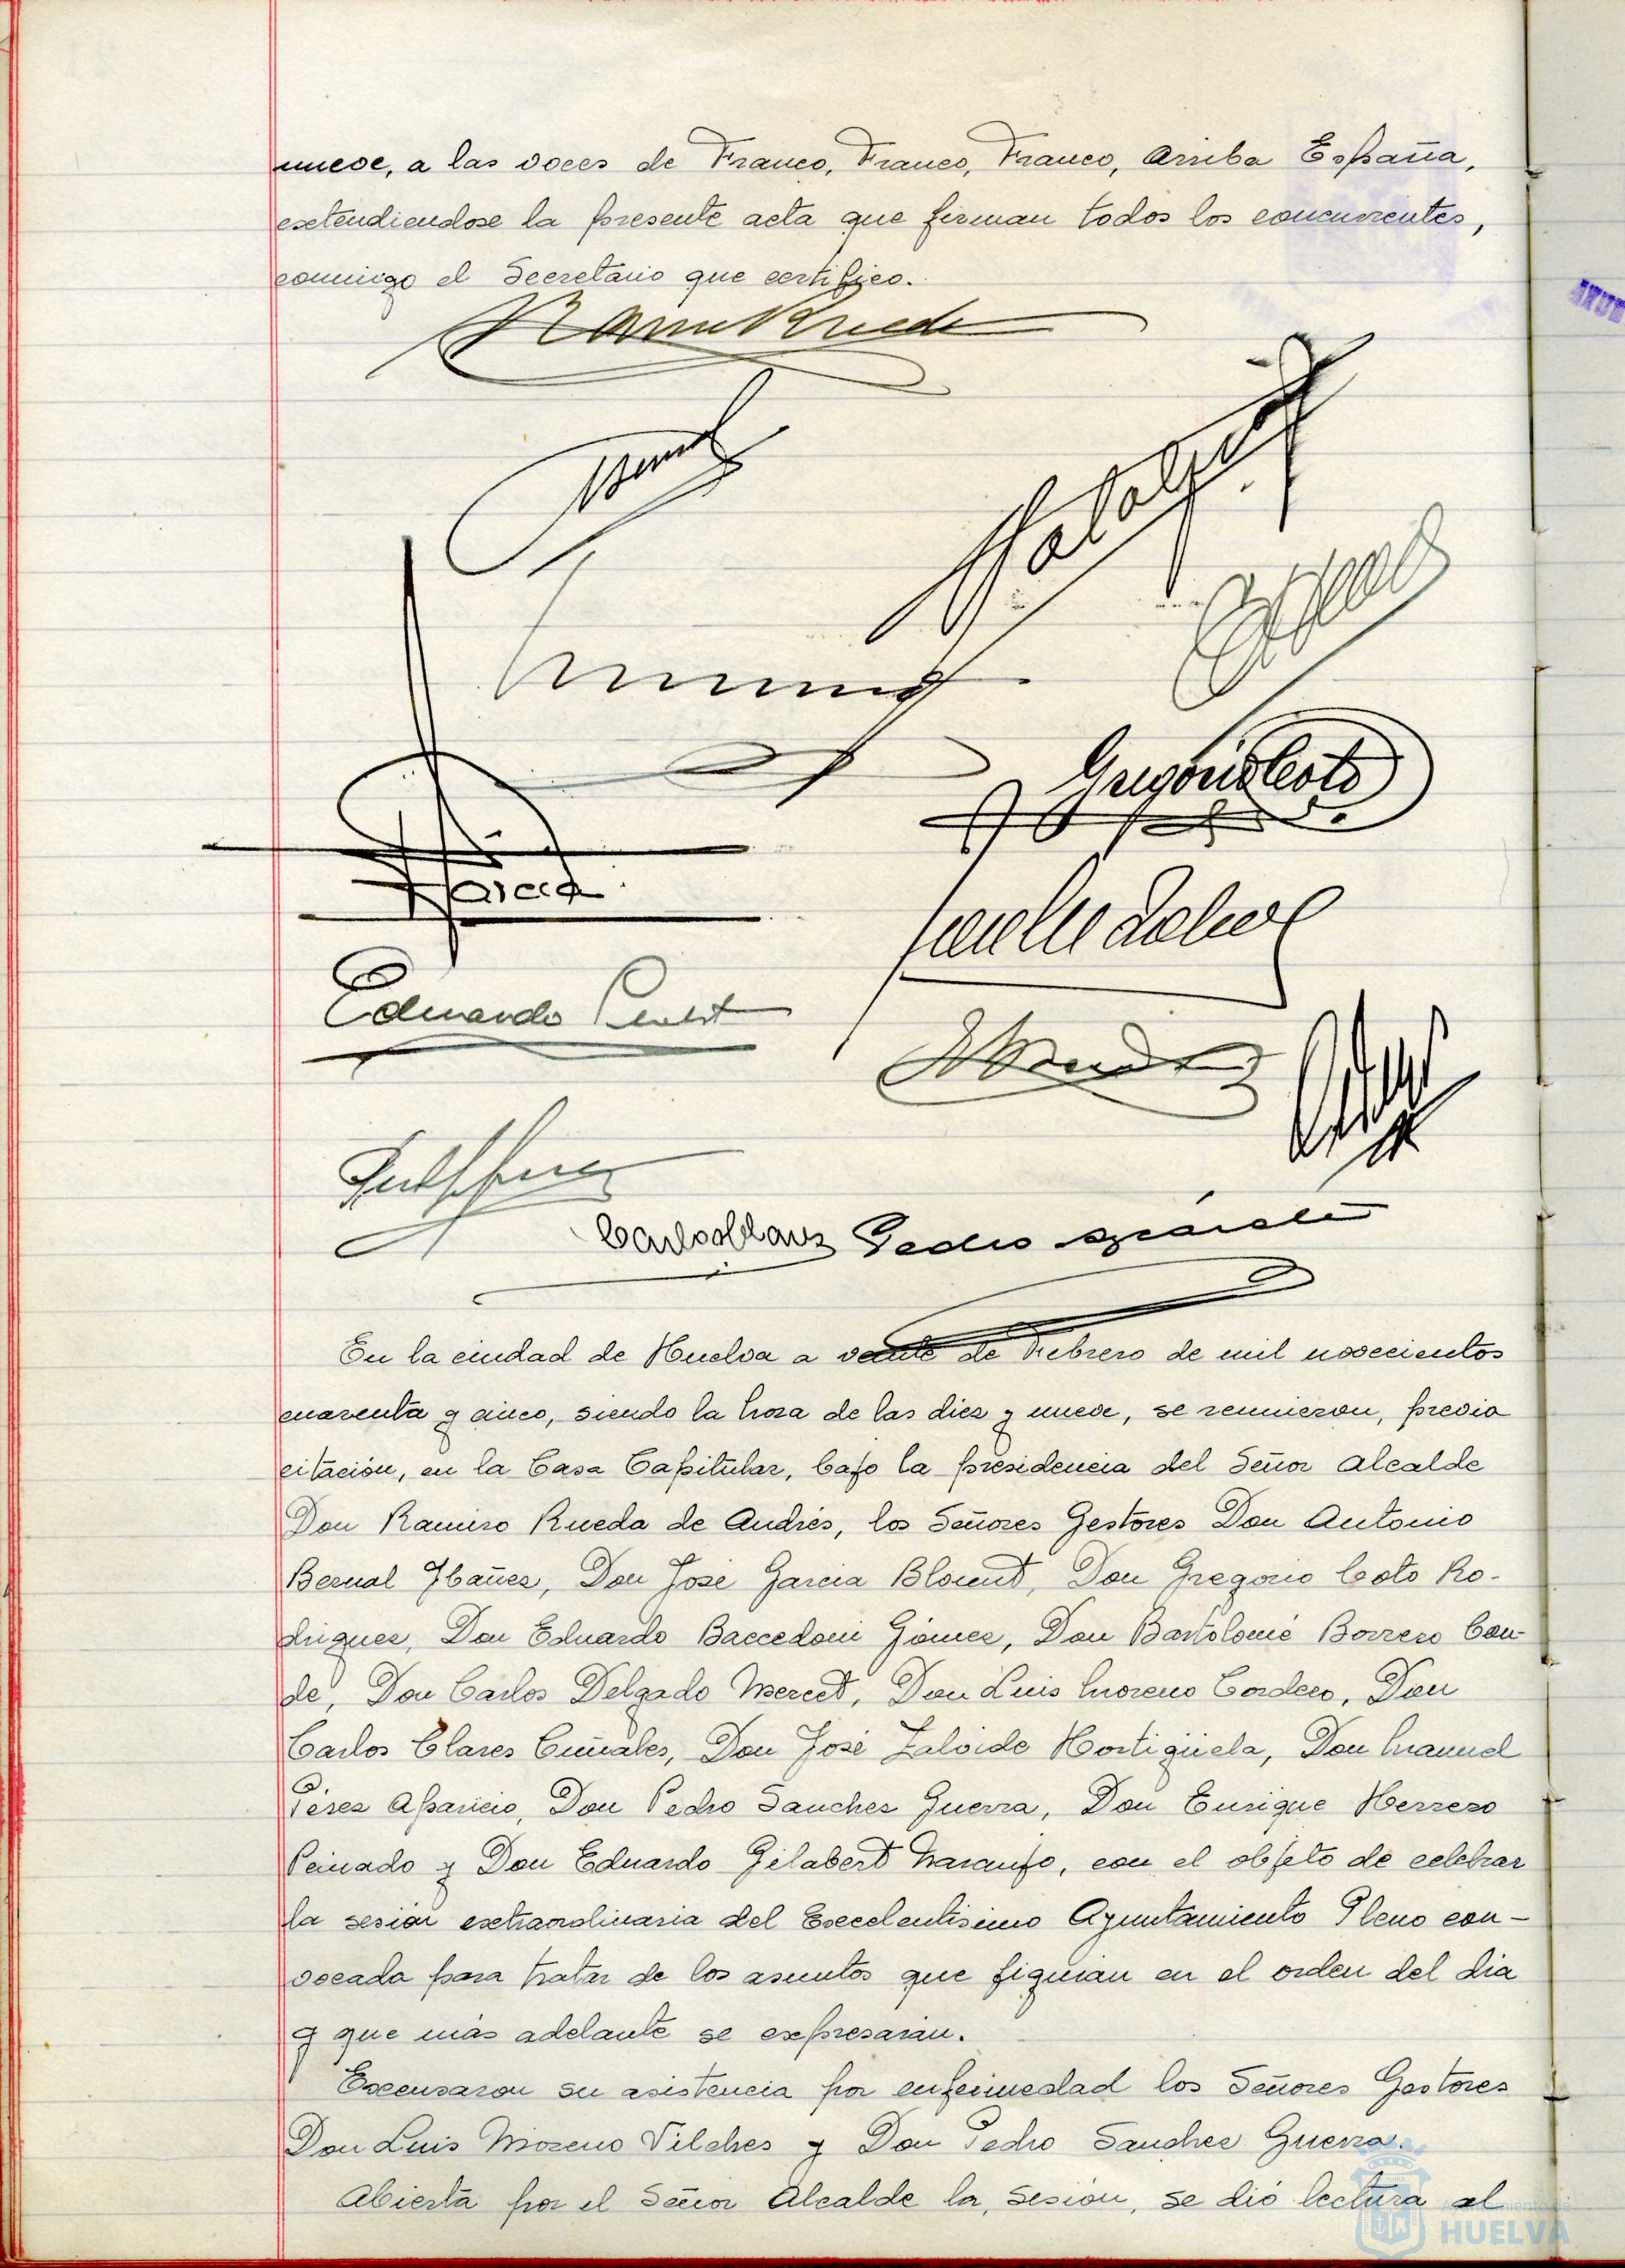 nueve, a las voces de Franco, Franco, Franco, Arriba España,
extendiendose la presente acta que firman todos los concurrentes,
conmigo el Secretario que certifico.
Garcia
Gregorio Coto
Eduardo
Carlos Clares Pedro
En la ciudad de Huelva a veinte de Febrero de mil novecientos
cuarenta y cinco, siendo la hora de las diez y nueve, se reunieron, previa
citación, en la Casa Capitular, bajo la presidencia del Señor Alcalde
Don Ramiro Rueda de Andrés, los Señores Gestores Don Antonio
Bernal Ibañez, Don José Garcia Blount, Don Gregorio Coto Ro-
driguez, Don Eduardo Baccedoni Gómez, Don Bartolomé Borrero Con-
de, Don Carlos Delgado Mercet, Don Luis Moreno Cordero, Don
Carlos Clares Cuñales, Don José Zalvide Hortigüela, Don Manuel
Pérez Aparicio, Don Pedro Sanchez Guerra, Don Enrique Herrero
Peinado y Don Eduardo Gilabert Naranjo, con el objeto de celebrar
la sesion extraordinaria del Excelentisimo Ayuntamiento Pleno con-
vocada para tratar de los asuntos que figuran en el orden del dia
y que más adelante se expresarán.
Excusaron su asistencia por enfermedad los Señores Gestores
Don Luis Moreno Vilches y Don Pedro Sanchez Guerra.
Abierta por el Señor Alcalde la sesión, se dió lectura al
Ayuntamiento de
HUELVA